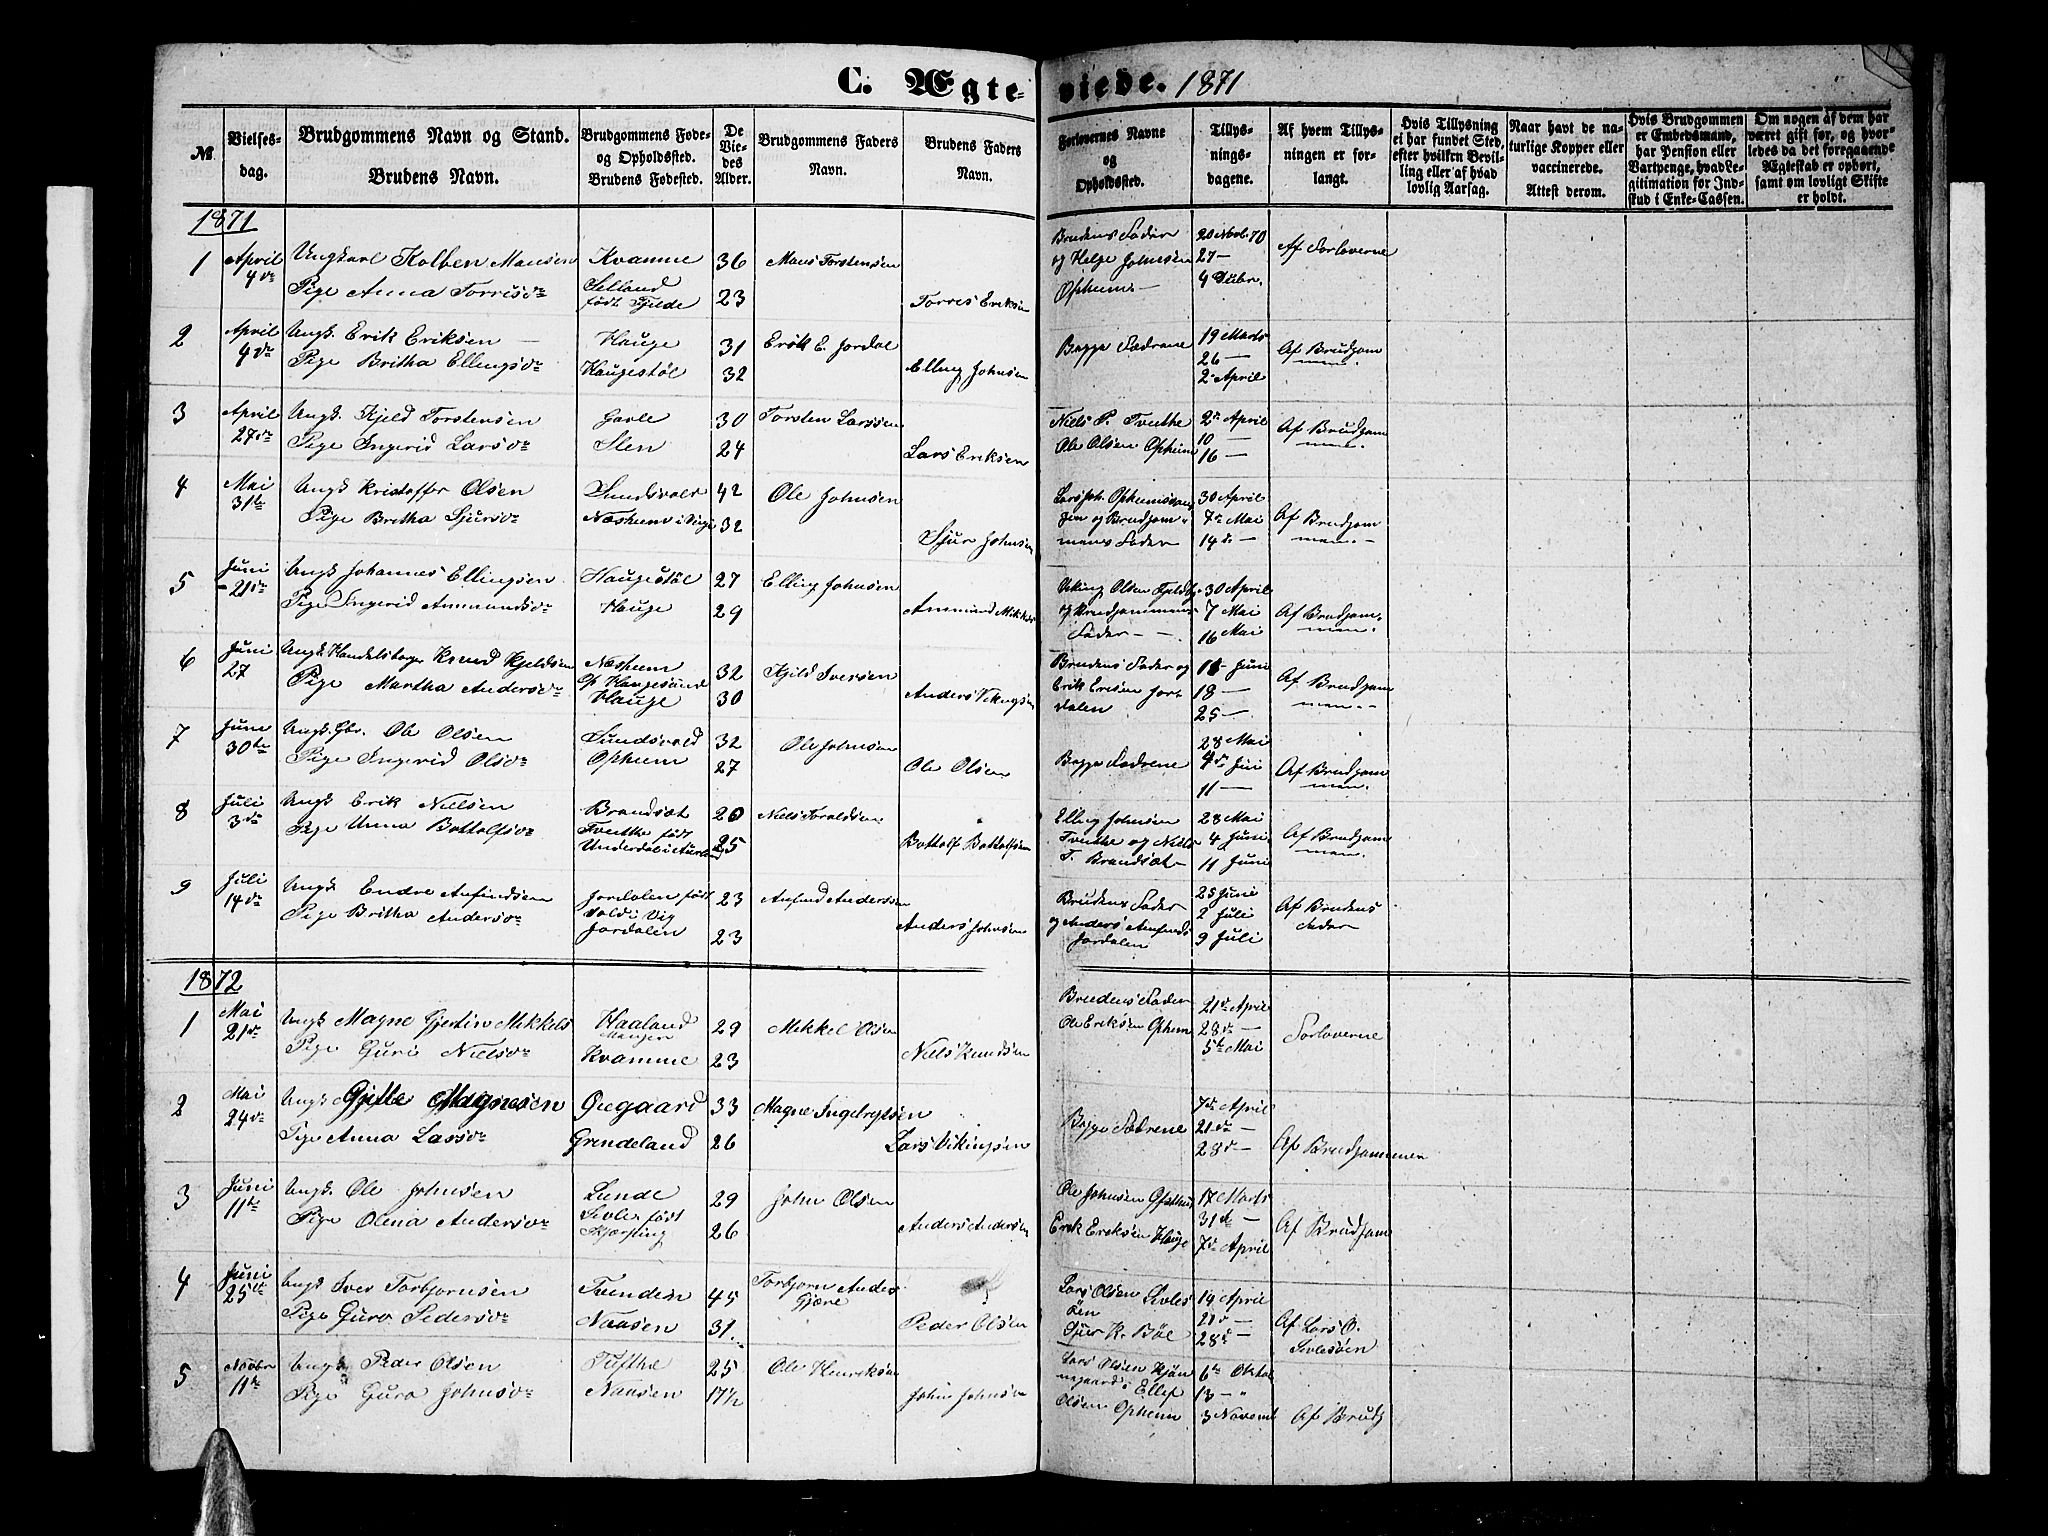 C. Ægteviede. 1871
№
Vielsesdag.
Brudgommens Navn og Stand.
Brudens Navn.
Brudgommens Føde-
og Opholdssted.
Brudens Fødested.
De
Vie-
des
Alder.
Brudgommens Faders
Navn.
Brudens Faders
Navn.
Forlovernes Navne
og
Opholdssted.
Tillys-
nings-
dagene.
Af hvem Tillys-
ningen er for-
langt.
Hvis Tillysning
ei har fundet Sted,
efter hvilken Bevil-
ling eller af hvad
lovlig Aarsag.
Naar havt de na-
turlige Kopper eller
vaccinerede.
Attest derom.
Hvis Brudgommen
er Embedsmand,
har Pension eller
Vartpenge, hvad Le-
gitimation for Ind-
skud i Enke-Cassen.
Om nogen af dem har
været gift før, og hvor-
ledes da det foregaaende
Ægteskab er ophørt,
samt om lovligt Skifte
er holdt.
1871
1 April 4de Ungkarl Kolben Monsen Kvamme 36 Mons Torstensen
Pige Anna Torrisdr Selland født Tjelde 23 Torris Eriksen
Brudens Fader og Helge Johnsen Opheim
20 Novb. 70
27 —
4 Debr.
Af Forloverne
2 April 4de Ungk. Erik Eriksen Hauge 31 Erik E. Jordal
Pige Britha Ellingsdr Haugestøl 32 Elling Johnsen
Begge Fædrene
19 Marts
26 —
2 April
Af Brudgommen.
3 April 27de Ungk. Kjeld Torstensen Gavle 30 Torsten Larssen
Pige Ingerid Larsdr Slen 24 Lars Eriksen
Niels P. Tvinthe
Ole Olsen Opheim
2de April
10 —
16 —
Af Brudgommen
4 Mai 31te Ungk Kristoffer Olsen Sundsvold 42 Ole Johnsen
Pige Britha Sjursdr Næsheim i Vigø 32 Sjur Johnsen
og Brudgommens Fader
30 April
7de Mai
14de —
Af Brudgommen.
5 Juni 21de Ungk Johannes Ellingsen Haugestøl 27 Elling Johnsen
Pige Ingerid Ammundsdr Hauge 29 Ammund Mikkels
Viking Olsen
og Brudgommens Fader
30 April
7 Mai
16 Mai
Af Brudgommen.
6 Juni 27 Ungk Handelsborger Knud Kjeldsen Næsheim Op Haugesund 32 Kjeld Iversen
Pige Martha Andersdr Hauge 30 Anders Vikingsen
Brudens Fader og
Erik Ersen Jordalen
11 Juni
18 —
25 —
Af Brudgommen.
7 Juni 30te Ungk. Gbr. Ole Olsen Sundsvold 32 Ole Johnsen
Pige Ingerid Olsdr Opheim 27 Ole Olsen
Begge Fædrene
28 Mai
4de Juni
11 —
Af Brudgommen.
8 Juli 3die Ungk Erik Nielsen Brandsæt 20 Niels Toraldsen
Pige Unna Bottolfsdr Tvinthe født Underdal i Aurland 25 Bottolf Bottolfsen
Elling Johnsen
Tvinthe og Niels
T. Brandsæt
28 Mai
4 Juni
11 Juni
Af Brudgommen.
9 Juli 14de Ungk Endre Anfindsen Jordalen født Vold i Vig 23 Anfind Andersen
Pige Britha Andersdr Jordalen 23 Anders Johnsen
Brudens Fader
og Anders Anfinds
Jordalen
25 Juni
2 Juli
9 Juli
Af Brudens Fader
1872
1 Mai 21de Ungk Magne Gjertin Mikkels Haaland Manger 29 Mekkel Olsen
Pige Guri Nielsdr Kvamme 23 Niels Knudsen
Brudens Fader
Ole Eriksen Opheim
21de April
28de —
5te Mai
Forloverne
2 Mai 24de Ungk Gitle Magnesen Øiegaard 33 Magne Ingebrigtsen
Pige Anna Larsdr Grindeland 26 Lars Vikingsen
Begge Fædrene
7de April
21de —
28de —
Af Brudgommen
3 Juni 11te Ungk. Ole Johnsen Lunde 29 John Olsen
Pige Olena Andersdr Sivle født 26 Anders Andersen
Ole Johnsen
Erik Eriksen Hauge
17 Marts
31te —
7de April
Af Brudgom
4 Juni 25de Ungk Iver Torbjørnsen Tvinden 45 Torbjørn Anders Gjære
Pige Guro Pedersdr Naasen 31. Peder Olsen
Lars Olsen Sivlesøen
Sjur K. Bøe
14 April
21de —
28de —
Af Lars O. Sivlesøen
5 Novbr 11te Ungk Peder Olsen Tufthe 25 Ole Henriksen
Pige Guro Johnsdr Naasen 17½ John Johnsen
Lars Olsen
Ellef
Olsen Opheim
6te Oktob
13 — "
3 Novemb
Af Brudg